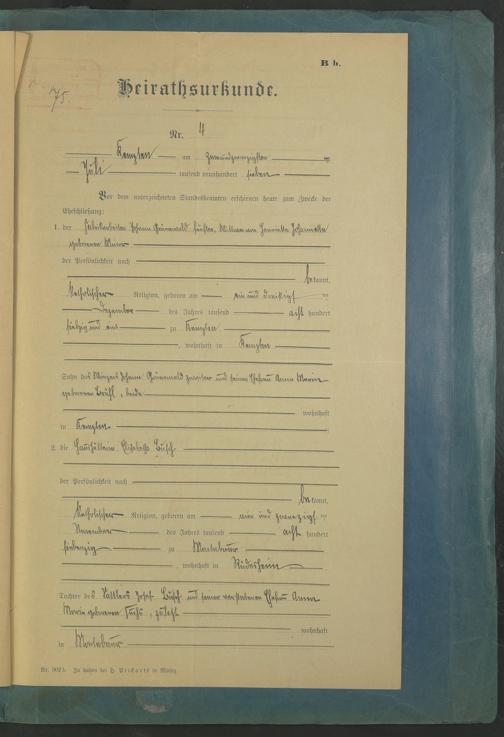 B b.
75.
Heirathsurkunde.
Nr. 4
Kempten am zweiundzwanzigsten ten
Juli tausend neunhundert sieben
Vor dem unterzeichneten Standesbeamten erschienen heute zum Zwecke der
Eheschließung:
1. der Fabrikarbeiter Johann Grünewald Wittwer von Henriette
geborenen
der Persönlichkeit nach
bekannt,
katholischer Religion, geboren am ein und dreißigsten
Dezember des Jahres tausend acht hundert
siebzig und eins zu Kempten
, wohnhaft in Kempten
Sohn des Johann Grünewald und seiner Ehefrau Anna Maria
geborenen beide
wohnhaft
in Kempten
2. die Elisabetha Busch
der Persönlichkeit nach
bekannt,
katholischer Religion, geboren am und zwanzigsten
November des Jahres tausend acht hundert
siebenzig zu Montabaur
, wohnhaft in Rüdesheim
Tochter des Sattlers Josef Busch und seiner verstorbenen Ehefrau Anna
Maria geborenen Fuchs, zuletzt
wohnhaft
in Montabaur
Nr. 302 b. Zu haben bei H. Prickarts in Mainz.